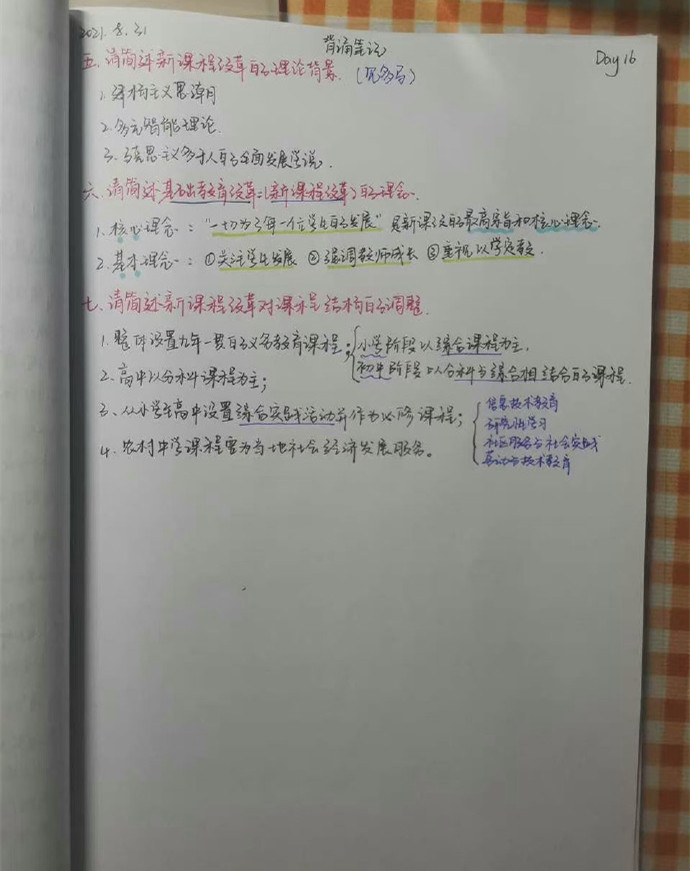 2021.8.31
背诵笔记
Day 16
五、请简述新课程改革的理论背景.(见多马)
1.建构主义思潮
2.多元智能理论.
3.马克思主义多于人的全面发展学说.
六、请简述基础教育改革(新课程改革)的理念.
1.核心理念:“一切为了每一位学生的发展”是新课改的最高宗旨和核心理念.
2.基本理念:①关注学生发展 ②强调教师成长 ③重视以学定教.
七、请简述新课程改革对课程结构的调整.
1.整体设置九年一贯的义务教育课程;
小学阶段以综合课程为主.
初中阶段以分科与综合相结合的课程.
2.高中以分科课程为主;
3、从小学至高中设置综合实践活动并作为必修课程;
信息技术教育
研究性学习
社区服务与社会实践
劳动与技术教育
4.农村中学课程要为当地社会经济发展服务。